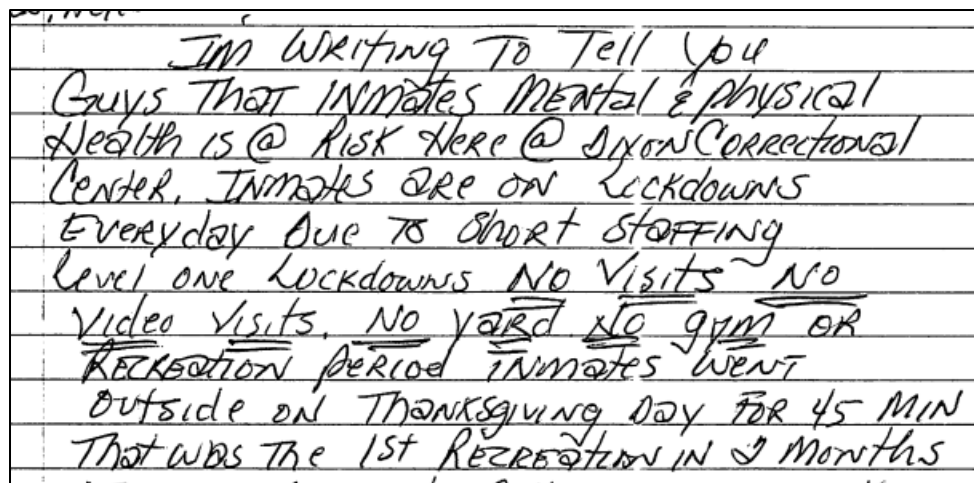 Im Writing To Tell You
Guys That inmates Mental & physical
Health is @ Risk Here @ Dixon Correctional
Center. Inmates are on Lockdowns
Everyday Due To Short Staffing
level one Lockdowns No Visits No
Video Visits. No yard No gym or
Recreation period inmates went
outside on Thanksgiving Day For 45 Min
That was The 1st Recreation in 2 Months